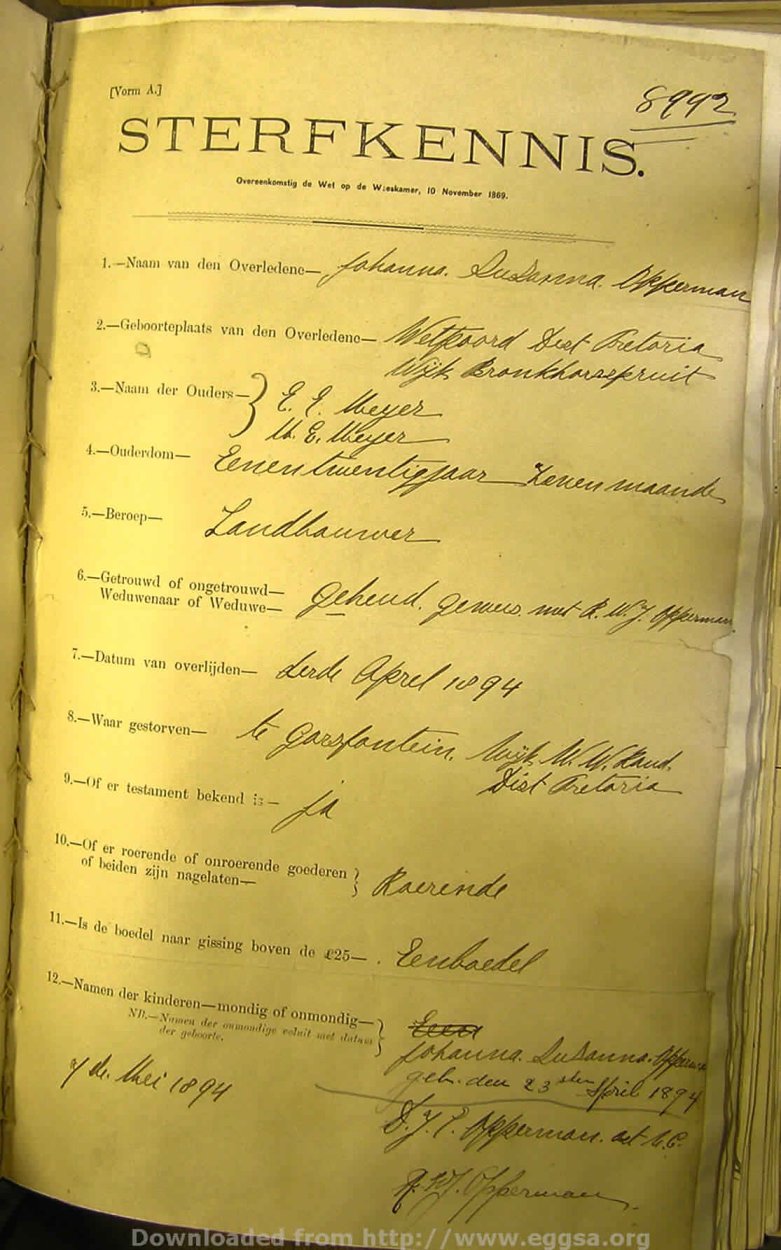 [Vorm A.]
8992
STERFKENNIS.
Overeenkomstig de Wet op de Weeskamer, 10 November 1869.
1.—Naam van den Overledene— Johanna. Susanna. Opperman
2.—Geboorteplaats van den Overledene— Welpoord Dist Pretoria
Wijk Bronkhorstspruit
3.—Naam der Ouders— Meyer
M. E. Meyer
4.—Ouderdom— Eenentwentig jaar Zeven maande
5.—Beroep— Landbouwer
6.—Getrouwd of ongetrouwd—
Weduwenaar of Weduwe— gehuwd. gewees met R. W. J. Opperman
7.—Datum van overlijden— derde April 1894
8.—Waar gestorven— te Garsfontein. Wijk W. W. Rand.
Dist Pretoria
9.—Of er testament bekend is— ja
10.—Of er roerende of onroerende goederen
of beiden zijn nagelaten— Roerende
11.—Is de boedel naar gissing boven de £25— . Eenboedel
12.—Namen der kinderen—mondig of onmondig— Een
NB.—Namen der onmondige voluit met datum
der geboorte.
Johanna. Susanna. Opperman
geb. den 23sten April 1894
7 de. Mei 1894
D. J. P. Opperman. act V. C.
R. W. J. Opperman.
Downloaded from http://www.eggsa.org